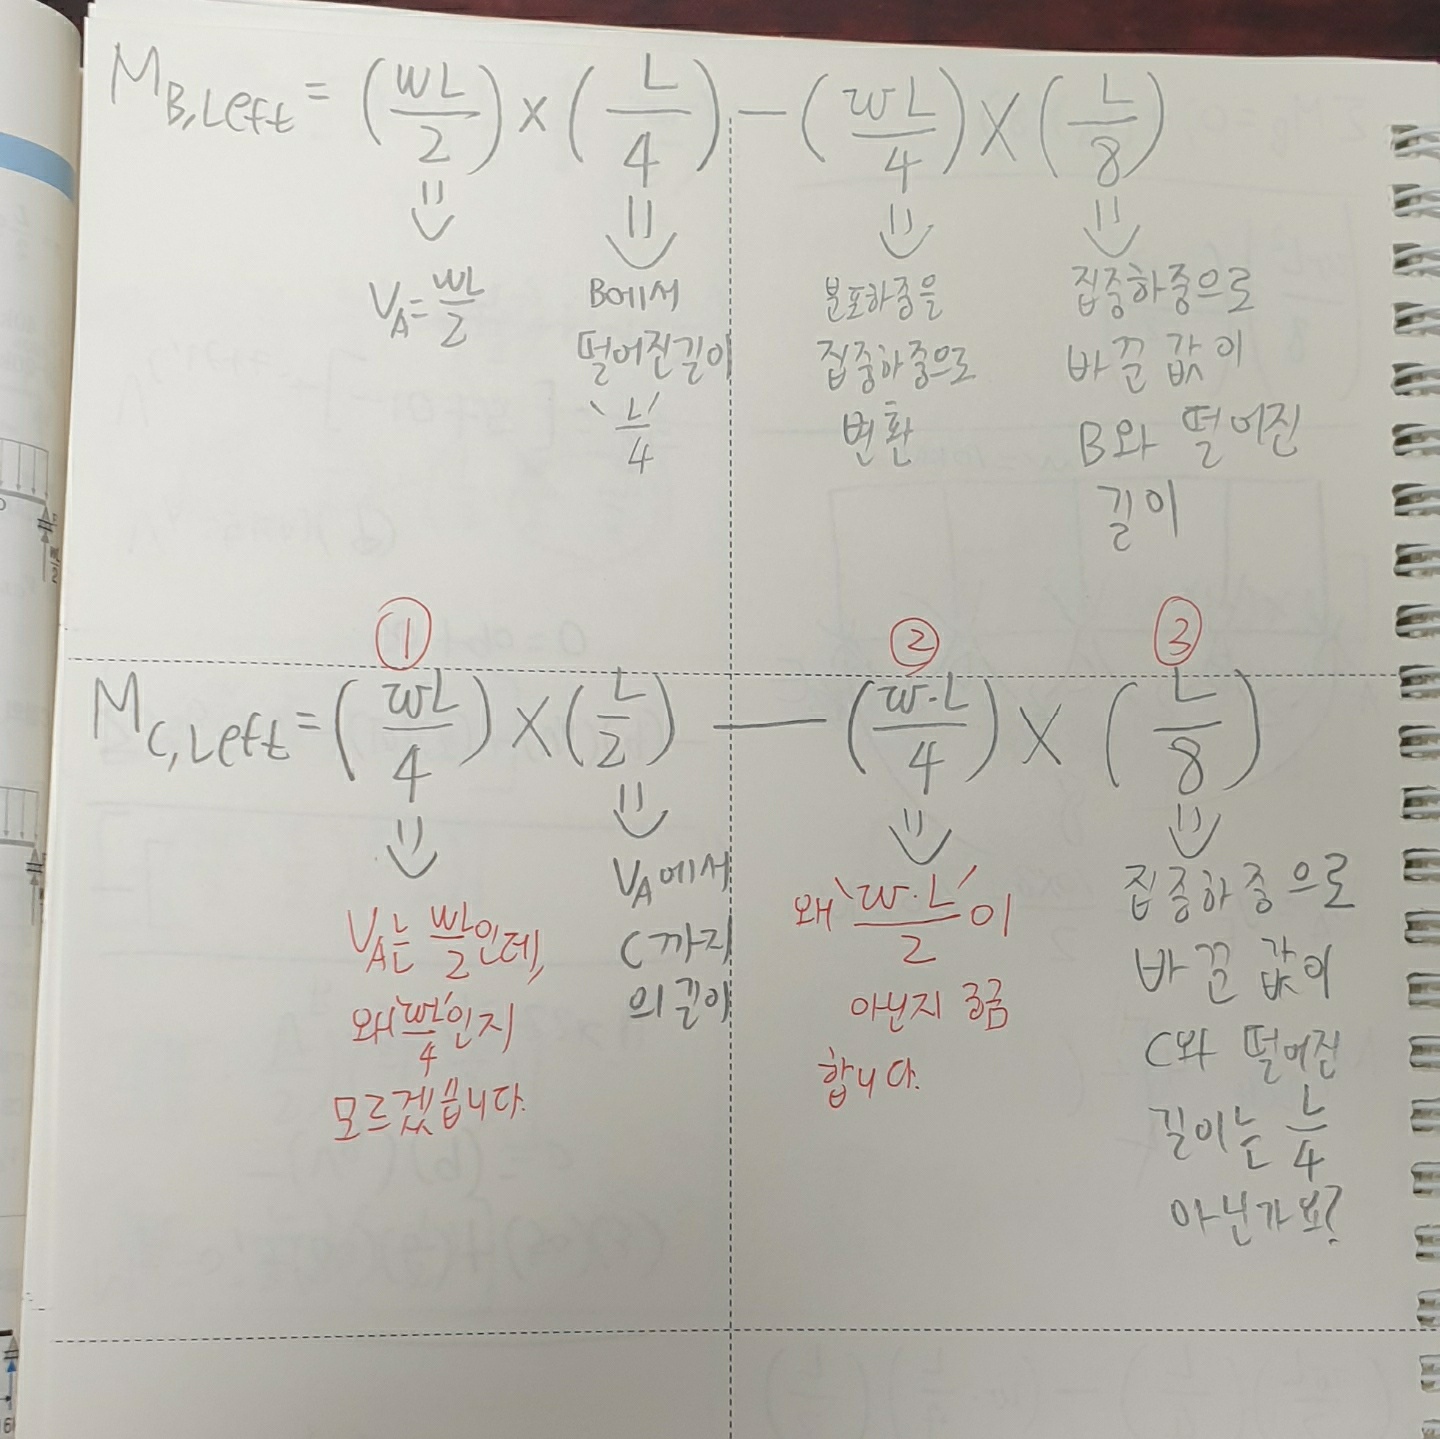 M_B,Left = (wL/2) × (L/4) − (wL/4) × (L/8)
V_A = wL/2
B에서
떨어진길이
'L/4'
분포하중을
집중하중으로
변환
집중하중으로
바꾼 값이
B와 떨어진
길이
① ② ③
M_C,Left = (wL/4) × (L/2) − (w·L/4) × (L/8)
V_A는 wL/2인데,
왜 'wL/4'인지
모르겠습니다.
V_A에서
C까지
의길이
왜 'w·L/2'이
아닌지 궁금
합니다.
집중하중으로
바꾼 값이
C와 떨어진
길이는 L/4
아닌가요?